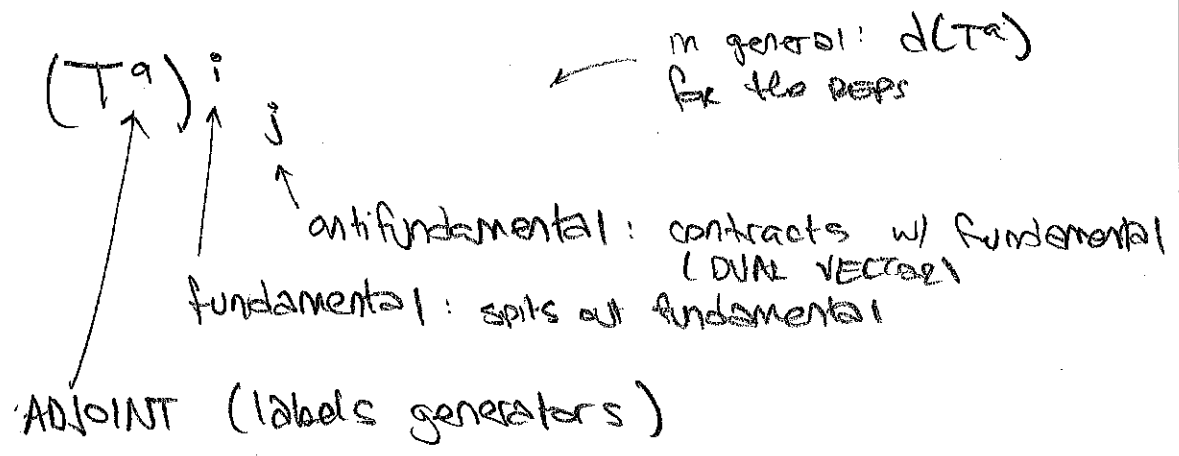 in general: d(Tᵃ)
for the REPS
(Tᵃ)ⁱ
j
antifundamental: contracts w/ fundamental
(DUAL VECTOR)
fundamental: spits out fundamental
ADJOINT (labels generators)